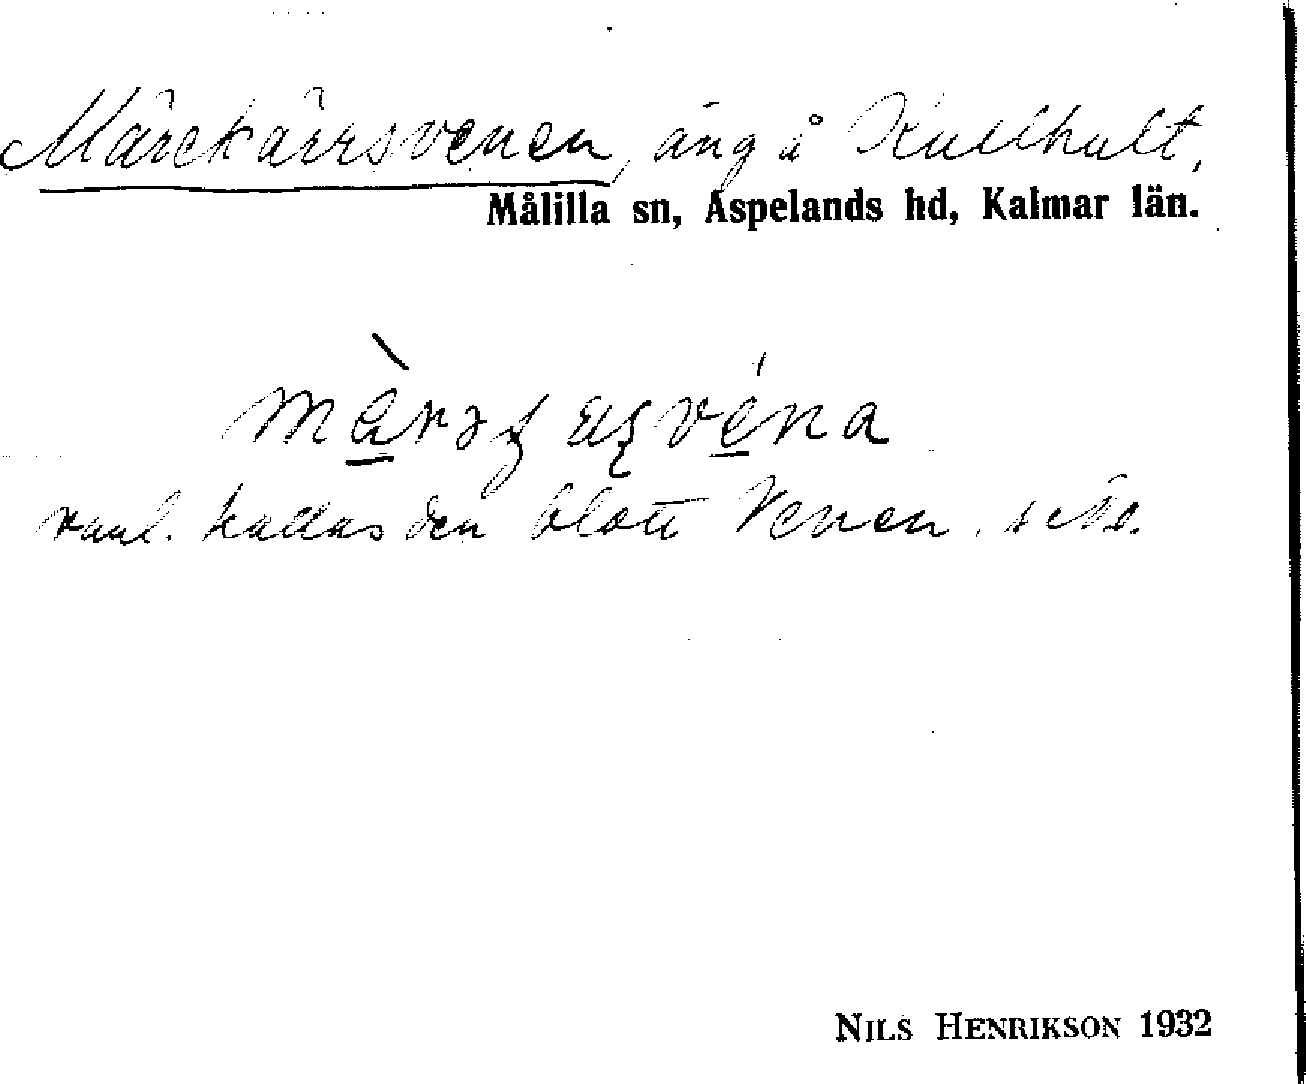 Märekärrsvenen, äng å Kullhult,
Målilla sn, Aspelands hd, Kalmar län.
vanl. kallas den blott Venen.
NILS HENRIKSON 1932